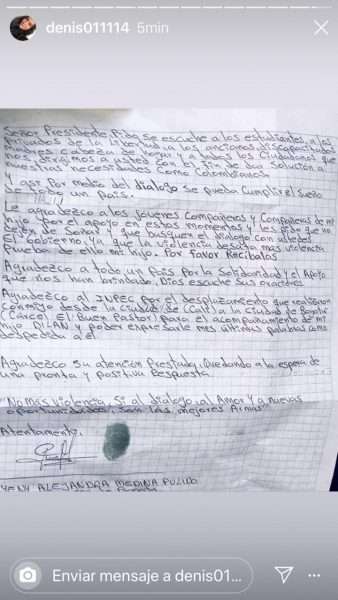 denis011114 5min
Señor Presidente Pido se escuche a los estudiantes, a los
Privados de la libertad, a los ancianos discapacitados
Madres cabeza de hogar y a todos los Ciudadanos que
nos dirigimos a usted con el fin de dar Solución a
nuestras necesidades como Colombianos
Y que Por medio del dialogo se pueda Cumplir el sueño
de todo un país.
Le agradezco a los jóvenes Compañeros y Compañeras de mi
hijo por el apoyo en estos momentos y les pido que no
dejen de Soñar y que busquen el dialogo con usted
El Gobierno, Ya que la violencia desata mas violencia
Prueba de ello mi hijo. Por favor Recibalos
Agradezco a todo un País por la Solidaridad y el Apoyo
que nos han brindado, Dios escuche sus oraciones
Agradezco al INPEC por el desplazamiento que realizaron
Conmigo desde la ciudad de (Cali) a la Ciudad de Bogotá
(Cárcel El Buen Pastor) para el acompañamiento de mi
hijo DILAN y poder expresarle mis últimas palabras como
despedida a el.
Agradezco su atención Prestada, Quedando a la espera de
una pronta y positiva Respuesta
"No mas violencia, Si al dialogo, al Amor y a nuevas
oportunidades, son las mejores Armas"
Atentamente,
YENY ALEJANDRA MEDINA PULIDO
Enviar mensaje a denis01...